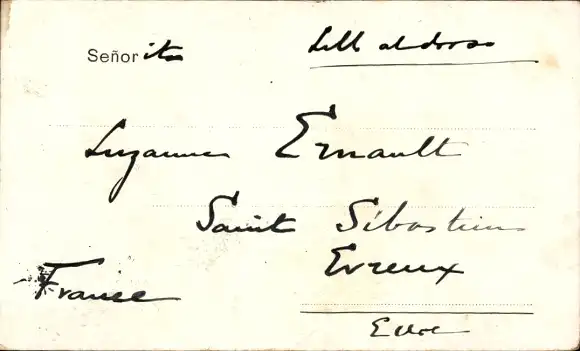 Señorita
Sello al dorso
Suzanne Ernault
Saint Sébastien
Evreux
France
Eure